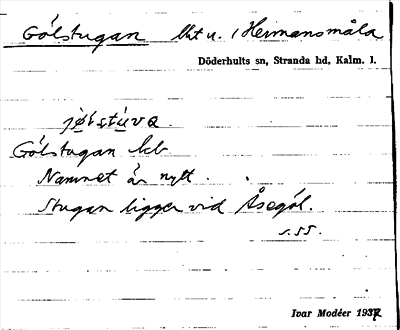 Gölstugan lht u. / Hermansmåla
Döderhults sn, Stranda hd, Kalm. l.
jø̀lstúva.
Gölstugan
Namnet är nytt.
Stugan ligger vid Åsegöl.
s. 55.
Ivar Modéer 1937